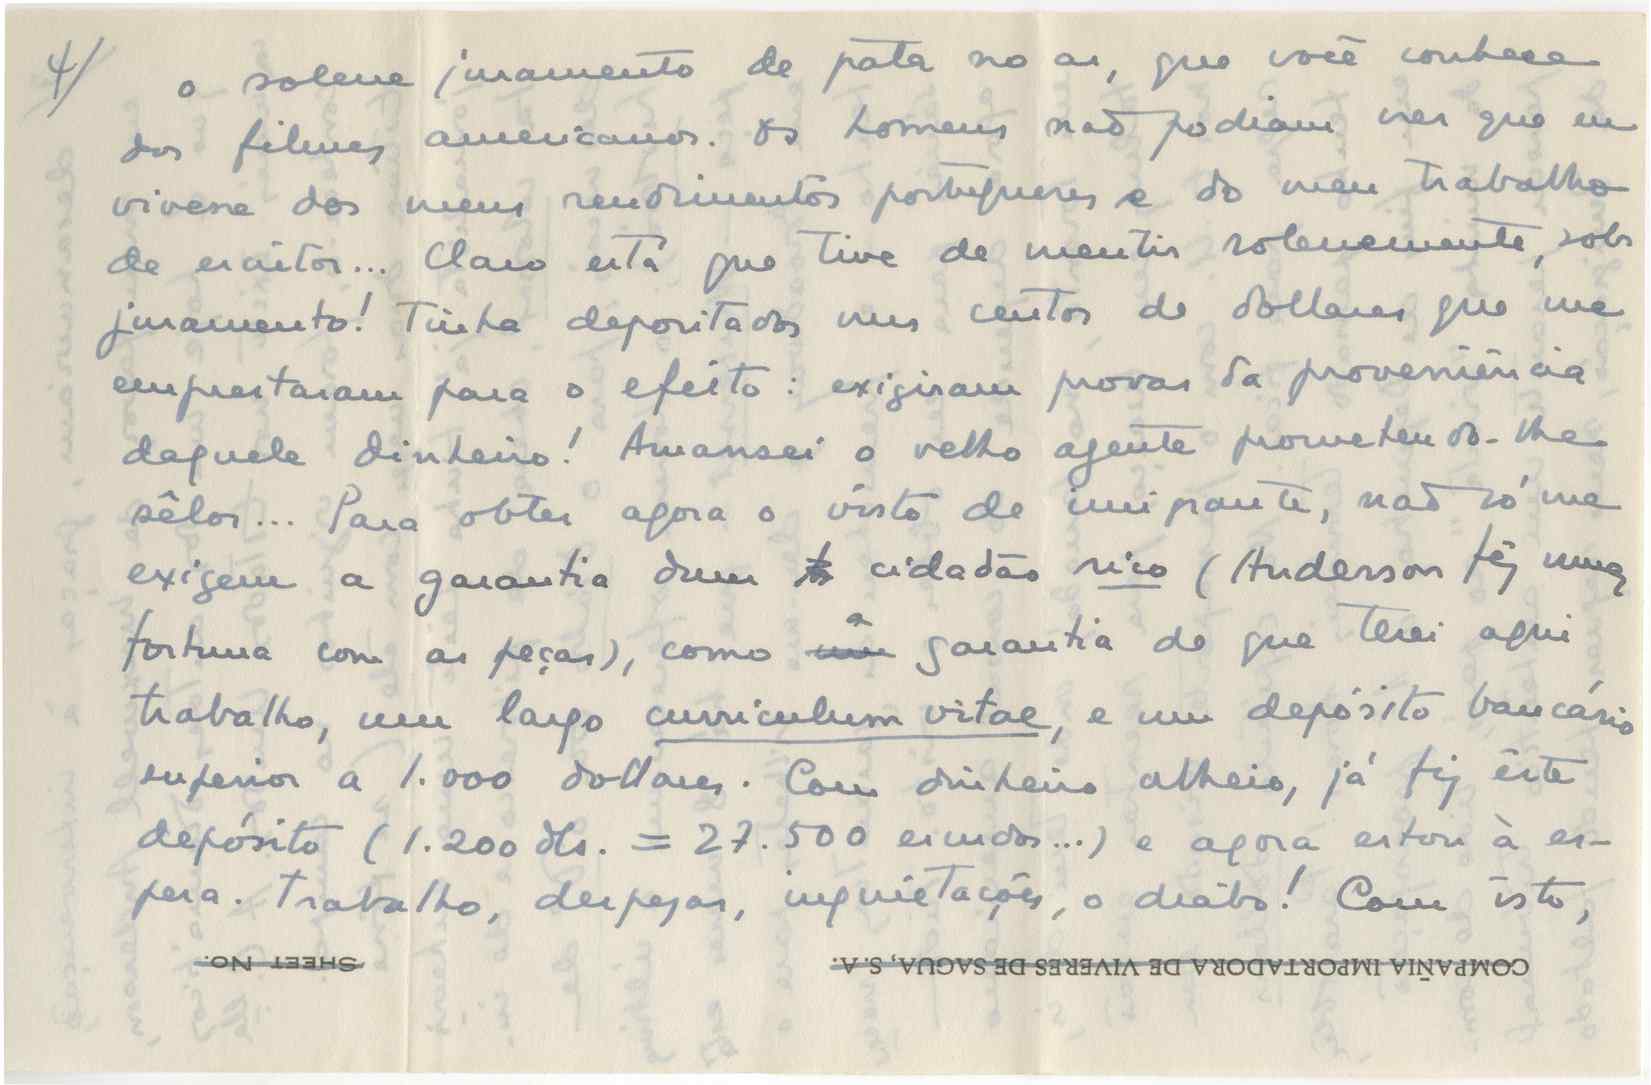 4/
o solene juramento de pata no ar, que você conhece
dos filmes americanos. Os homens não podiam crer que eu
vivesse dos meus rendimentos portugueses e do meu trabalho
de escritor... Claro está que tive de mentir solenemente, sob
juramento! Tinha depositados uns centos de dollares que me
emprestaram para o efeito: exigiram provas da proveniência
daquele dinheiro! Amansei o velho agente prometendo-lhe
sêlos... Para obter agora o visto de imigrante, não só me
exigem a garantia dum cidadão rico (Anderson fêz uma
fortuna com as peças), como a garantia de que terei aqui
trabalho, um largo curriculum vitae, e um depósito bancário
superior a 1.000 dollares. Com dinheiro alheio, já fiz êste
depósito (1.200 dls. = 27.500 escudos...) e agora estou à es-
pera. Trabalho, despesas, inquietações, o diabo! Com isto,
COMPAÑIA IMPORTADORA DE VIVERES DE SAGUA, S.A.
SHEET NO.